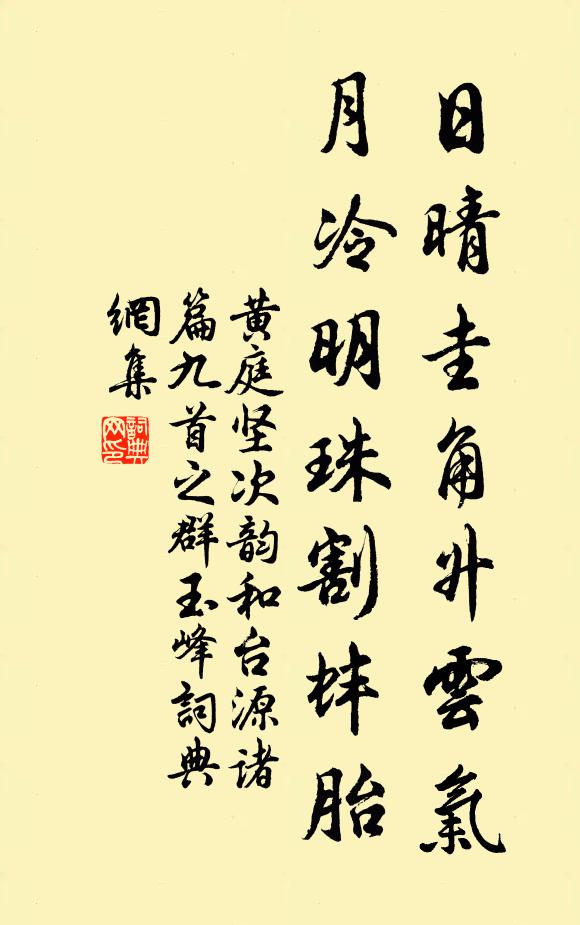 日晴圭角升雲氣
月冷明珠割蚌胎
黄庭坚次韵和台源诸
篇九首之群玉峰詞典
網集
詞典
网印